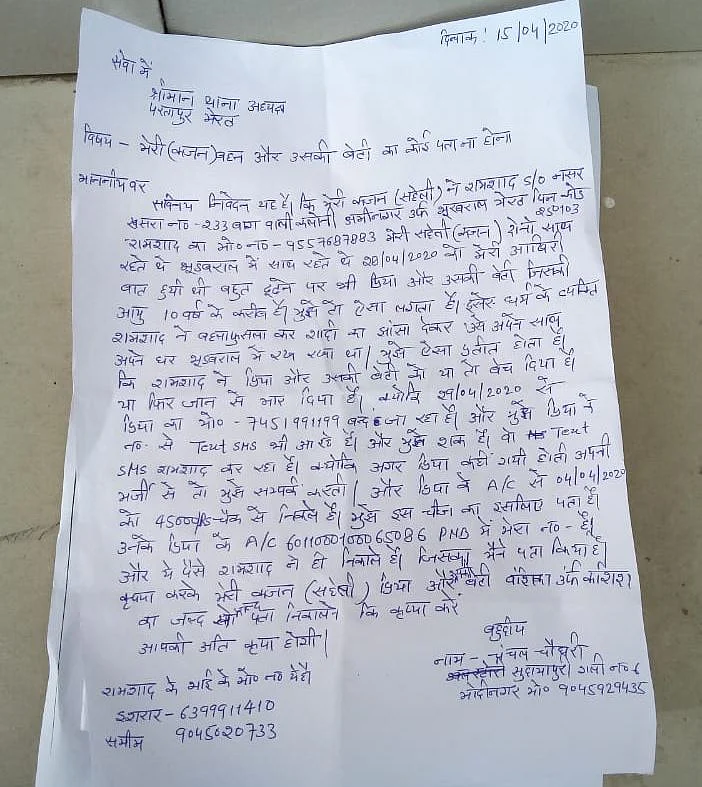 दिनांक: 15/04/2020
सेवा में
श्रीमान थाना अध्यक्ष
परतापुर मेरठ
विषय - मेरी (कजन) बहन और उसकी बेटी का कोई पता ना होना
माननीय वर
सविनय निवेदन यह है। कि मेरी कजन (सहेली) ने शमशाद S/O नसर
खसरा न० - 233 वाली कालोनी अमीनगर उर्फ भूडबराल मेरठ पिन कोड
250103
शमशाद का मो० न० - 9557687883 मेरी सहेली (कजन) दोनो साथ
रहते थे भूडबराल में साथ रहते थे 28/04/2020 को मेरी आखिरी
बात हुयी थी बहुत ढूंढने पर भी प्रिया और उसकी बेटी जिसकी
आयु 10 वर्ष के करीब है। मुझे तो ऐसा लगता है। दूसरे धर्म के व्यक्ति
शमशाद ने बहलाफुसला कर शादी का झांसा देकर उसे अपने साथ
अपने घर भूडबराल में रख रखा था। मुझे ऐसा प्रतीत होता है।
कि शमशाद ने प्रिया और उसकी बेटी को या तो बेच दिया है।
या फिर जान से मार दिया है। क्योकि 29/04/2020 से
प्रिया का मो० - 7451991199 बन्द जा रहा है। और मुझे प्रिया के
न० से Text SMS भी आ रहे है। और मुझे शक है। वो Text
SMS शमशाद कर रहा है। क्योकि अगर प्रिया कही गयी होती अपनी
मर्जी से तो मुझे सम्पर्क करती। और प्रिया के A/C से 04/04/2020
को 45000/- चैक से निकाले है। मुझे इस चीज का इसलिए पता है।
उनके प्रिया के A/C 6011000100065086 PNB में मेरा न० - है।
और ये पैसे शमशाद ने ही निकाले है। जिसका मैने पता किया है।
कृपया करके मेरी कजन (सहेली) प्रिया और उसकी बेटी वंशिका उर्फ कशिश
का जल्द पता निकालने कि कृपा करे
आपकी अति कृपा होगी।
नाम - चंचल चौधरी
सुदामापुरी गली न० 6
मोदीनगर मो० 9045929435
शमशाद के भाई के मो० न० ये है।
इसरार - 6399911410
समीम 9045020733